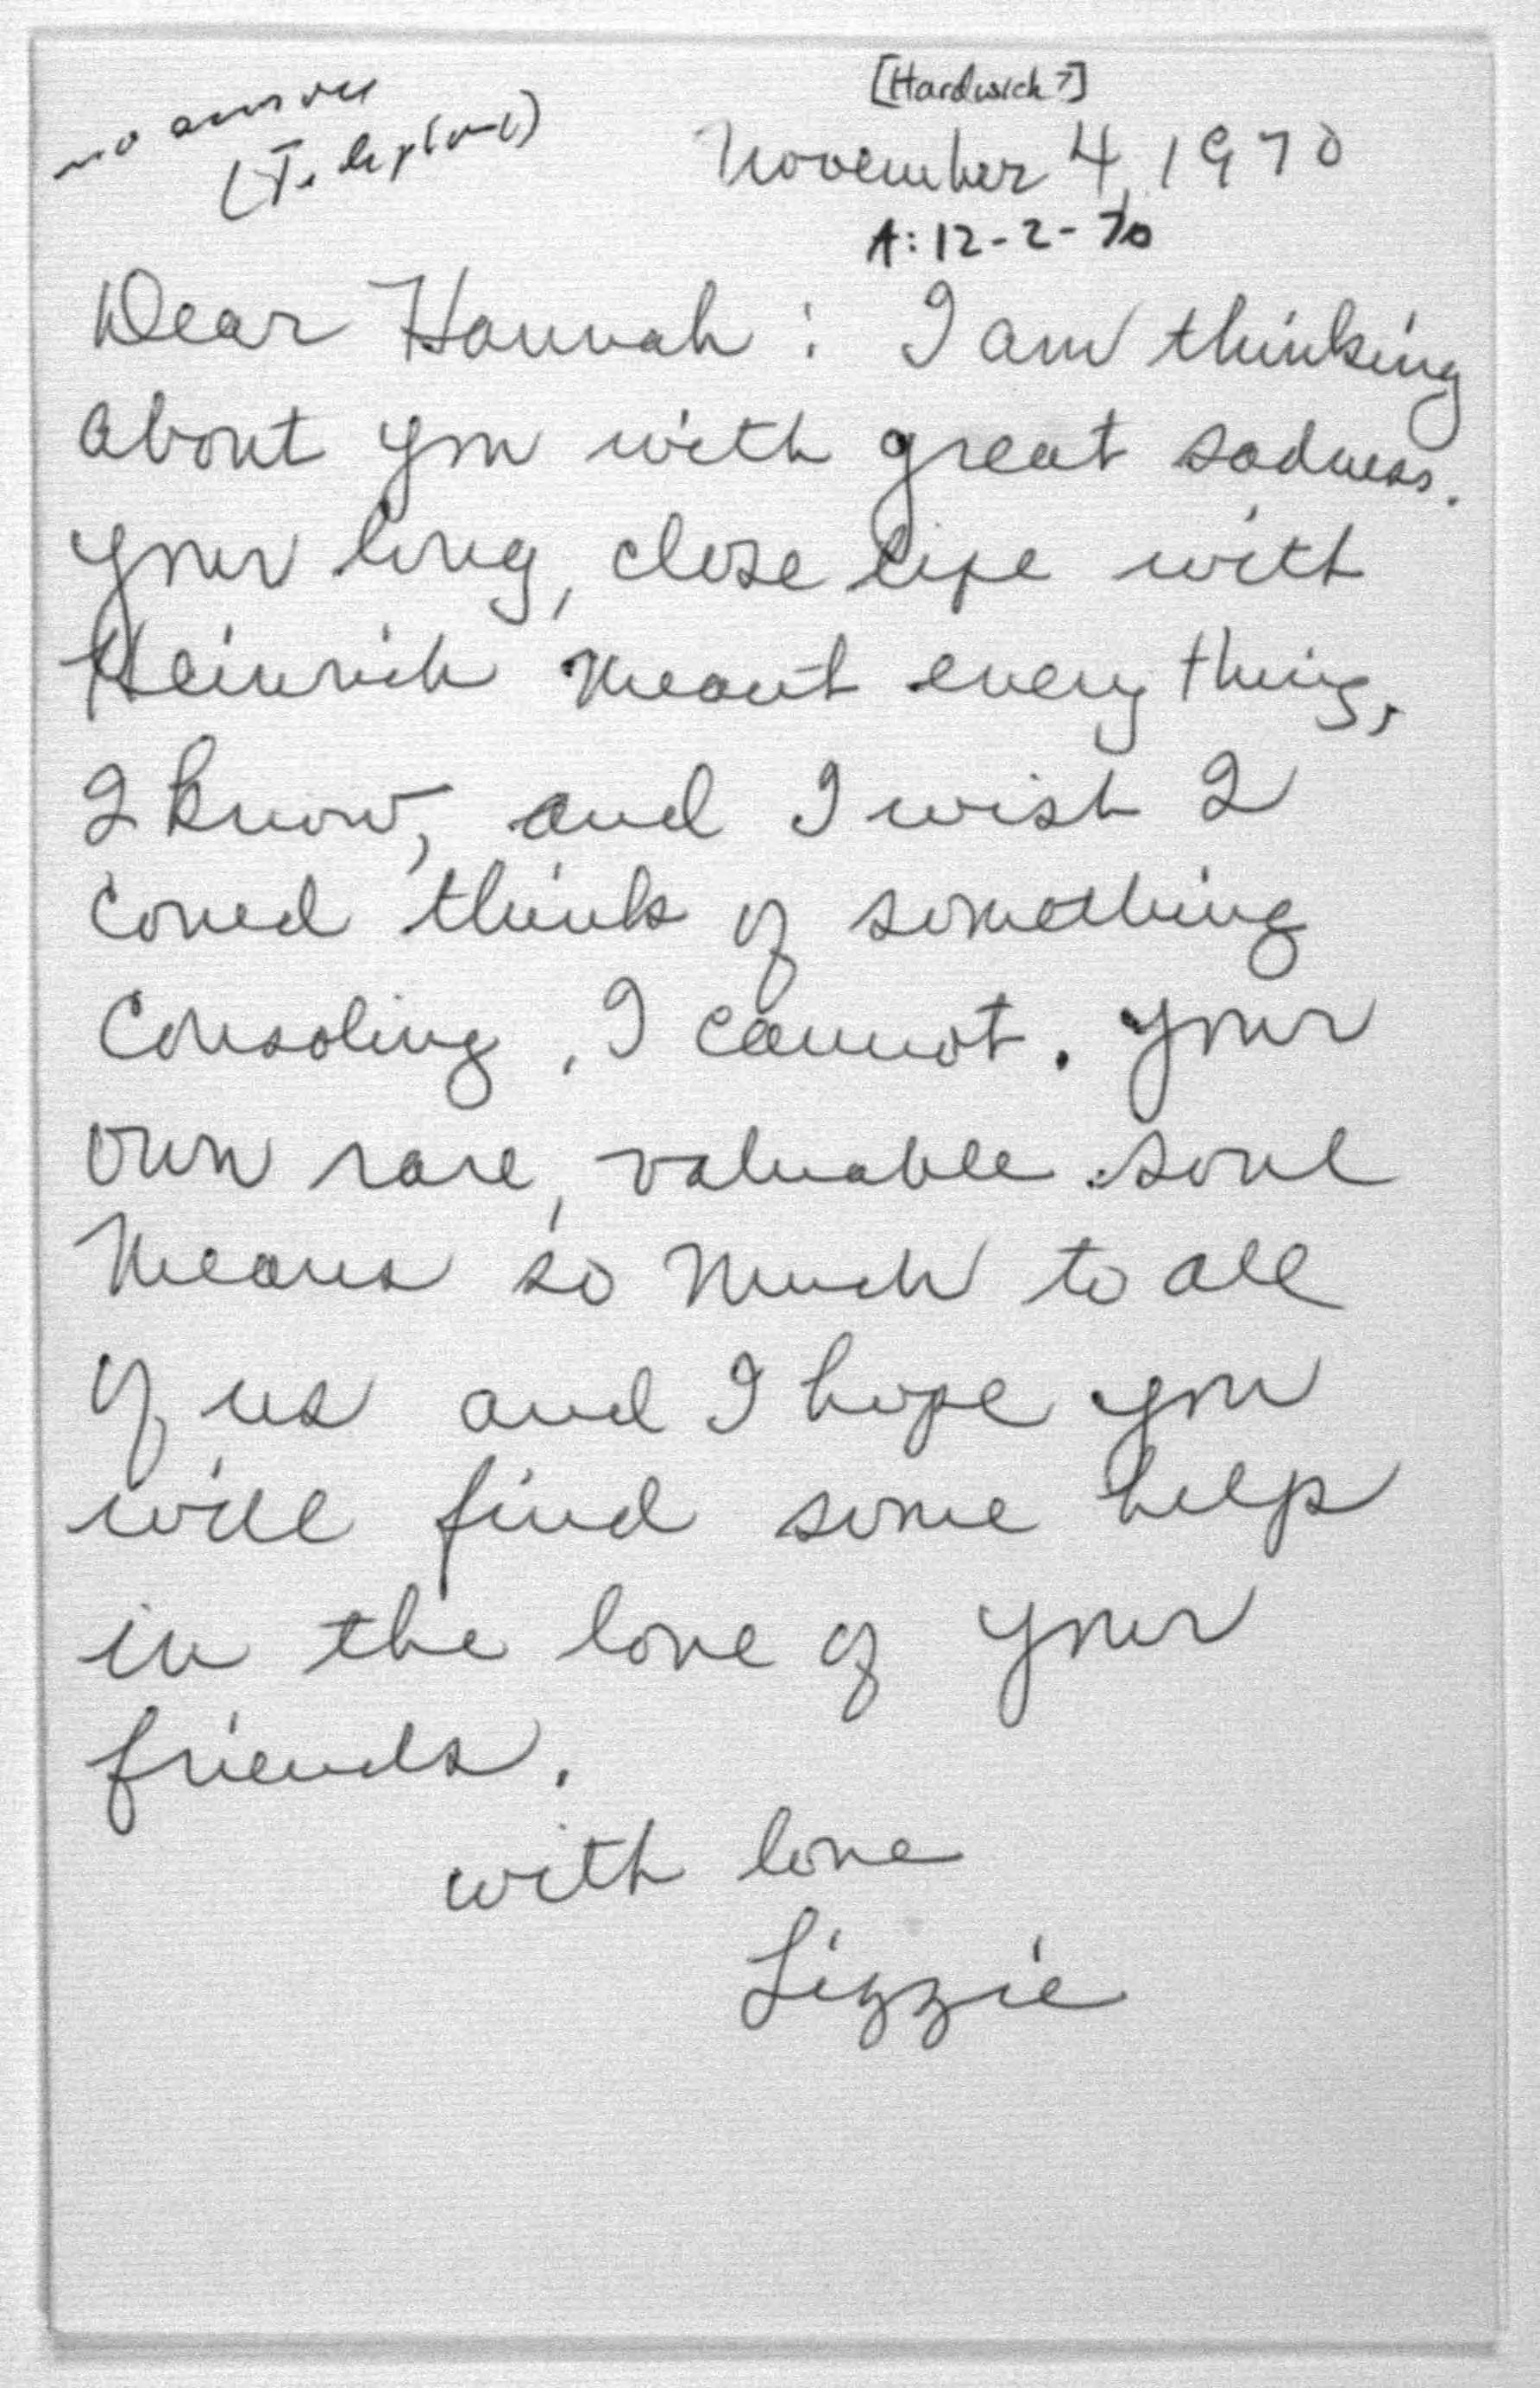 no answer
(Telephone)
[Hardwick?]
November 4, 1970
A: 12-2-70
Dear Hannah : I am thinking
about you with great sadness.
Your long, close life with
Heinrich meant everything,
I know, and I wish I
could think of something
consoling. I cannot. Your
own rare, valuable soul
means so much to all
of us and I hope you
will find some help
in the love of your
friends.
with love
Lizzie